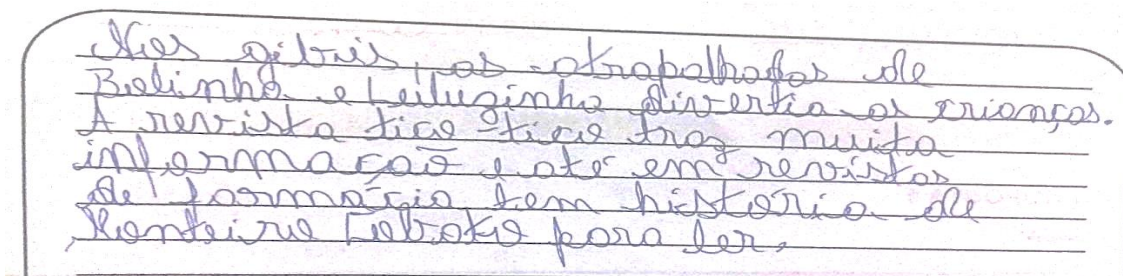 Nos gibis, as atrapalhadas de
Bolinha e Luluzinha divertia as crianças.
A revista tico-tico traz muita
informação e até em revistas
de farmácia tem história de
Monteiro Lobato para ler.